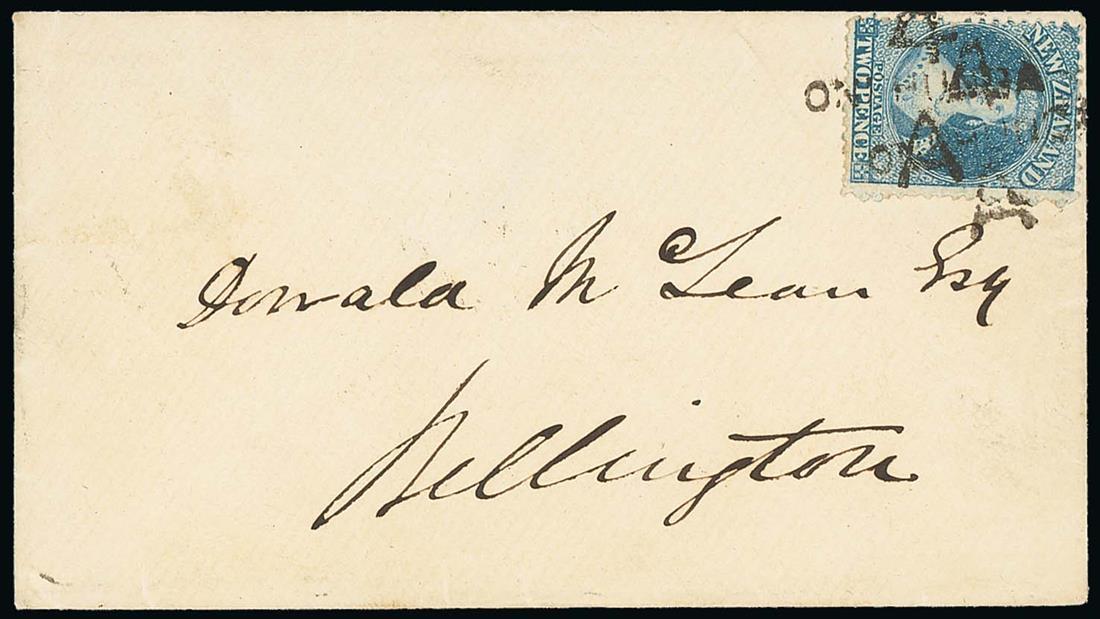 NEW ZEALAND
POSTAGE
TWO PENCE
Donald Mc Lean Esq
Wellington